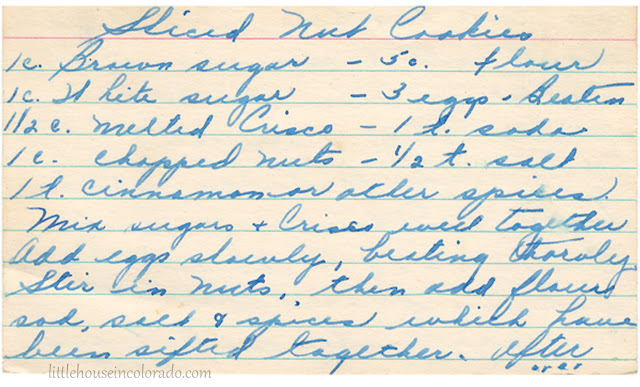 Sliced Nut Cookies
1c. Brown sugar - 5c. flour
1c. White sugar - 3 eggs - Beaten
1 1/2 c. melted Crisco - 1 t. soda
1c. chopped nuts - 1/2 t. salt
1 t. cinnamon or other spices.
Mix sugars + Crisco well together
Add eggs slowly, beating thoroly
Stir in nuts, then add flour
sod, salt & spices which have
been sifted together. After
littlehouseincolorado.com